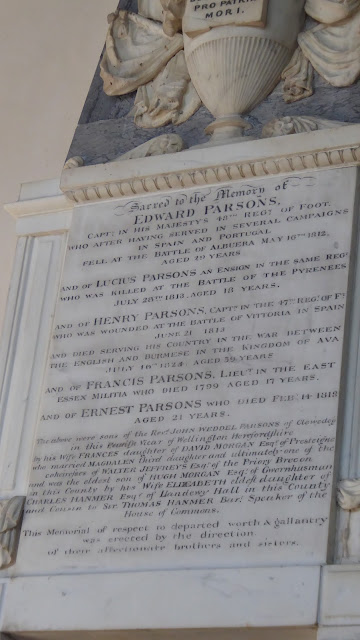 PRO PATRIA
MORI.
Sacred to the Memory of
EDWARD PARSONS,
CAPT. IN HIS MAJESTYS 48TH REGT. OF FOOT.
WHO AFTER HAVING SERVED IN SEVERAL CAMPAIGNS
IN SPAIN AND PORTUGAL
FELL AT THE BATTLE OF ALBUERA MAY 16TH 1812,
AGED 19 YEARS
AND OF LUCIUS PARSONS AN ENSIGN IN THE SAME REGT.
WHO WAS KILLED AT THE BATTLE OF THE PYRENEES
JULY 28TH 1813. AGED 18 YEARS.
AND OF HENRY PARSONS, CAPTN. IN THE 47TH REGT. OF FT.
WHO WAS WOUNDED AT THE BATTLE OF VITTORIA IN SPAIN
JUNE 21 1813
AND DIED SERVING HIS COUNTRY IN THE WAR BETWEEN
THE ENGLISH AND BURMESE IN THE KINGDOM OF AVA
JULY 16TH 1824. AGED 39 YEARS
AND OF FRANCIS PARSONS, LIEUT. IN THE EAST
ESSEX MILITIA WHO DIED 1799 AGED 17 YEARS.
AND OF ERNEST PARSONS WHO DIED FEB. 14 1818
AGED 21 YEARS.
The above were sons of the Revd. JOHN WEDDEL PARSONS of
in this Vicar of Wellington Herefordshire
by his Wife FRANCES daughter of DAVID MORGAN Esqr. of Presteigne
who married MAGDALEN Third daughter and ultimately one of the
coheiresses of WALTER JEFFREYS Esqr. of the Priory Brecon
and was the eldest son of HUGH MORGAN Esqr. of
in this County by his Wife ELIZABETH eldest daughter of
CHARLES HANMER Esqr. of Hall in this County
and Cousin to Sir THOMAS HANMER Bart. Speaker of the
House of Commons.
This Memorial of respect to departed worth & gallantry
was erected by the direction
of their affectionate brothers and sisters.